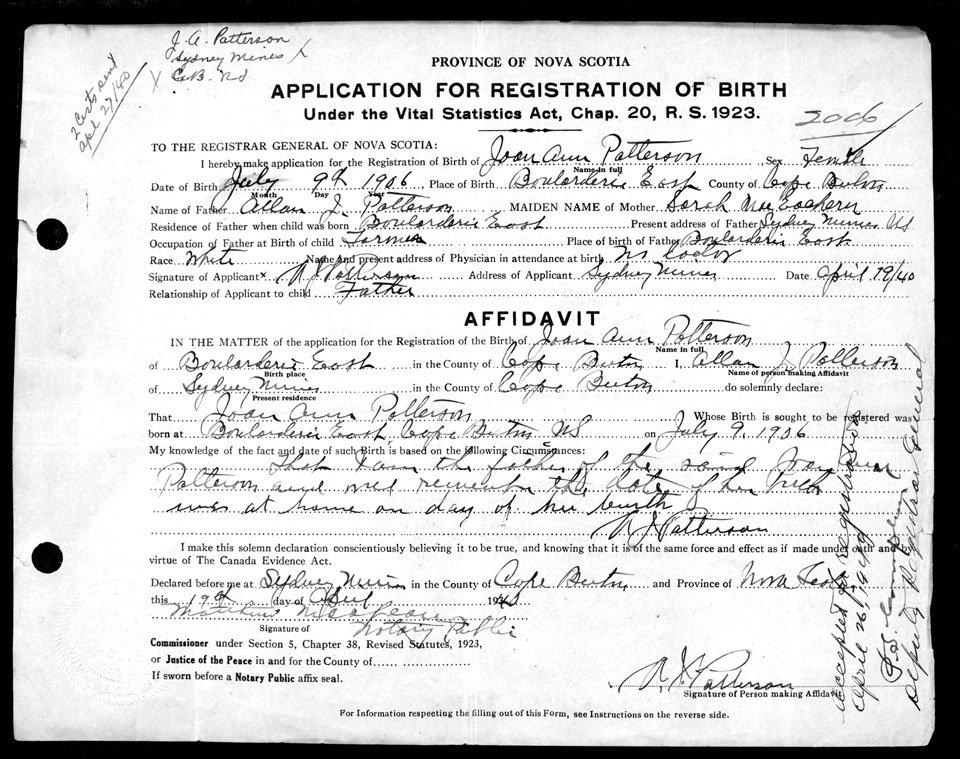 J. A. Patterson
Sydney Mines
C.B. NS
2 Certs sent
Apl. 27/40
PROVINCE OF NOVA SCOTIA
APPLICATION FOR REGISTRATION OF BIRTH
Under the Vital Statistics Act, Chap. 20, R. S. 1923.
2006
TO THE REGISTRAR GENERAL OF NOVA SCOTIA:
I hereby make application for the Registration of Birth of Joan Ann Patterson Sex Female
Name in full
Date of Birth July 9th 1906 Place of Birth Boularderie East County of Cape Breton
Month Day Year
Name of Father Allan J. Patterson MAIDEN NAME of Mother Sarah MacEachern
Residence of Father when child was born Boularderie East Present address of Father Sydney Mines NS
Occupation of Father at Birth of child Farmer Place of birth of Father Boularderie East
Race White Name and present address of Physician in attendance at birth No Doctor
Signature of Applicant x A J Patterson Address of Applicant Sydney Mines Date April 19/40
Relationship of Applicant to child Father
AFFIDAVIT
IN THE MATTER of the application for the Registration of the Birth of Joan Ann Patterson
Name in full
of Boularderie East in the County of Cape Breton I, Allan J. Patterson
Birth place Name of person making Affidavit
of Sydney Mines in the County of Cape Breton do solemnly declare:
Present residence
That Joan Ann Patterson Whose Birth is sought to be registered was
born at Boularderie East, Cape Breton NS on July 9, 1906
My knowledge of the fact and date of such Birth is based on the following Circumstances:
That I am the father of the said Joan Ann
Patterson and well remember the date of her birth
was at home on day of her birth
A J Patterson
I make this solemn declaration conscientiously believing it to be true, and knowing that it is of the same force and effect as if made under oath and by
virtue of The Canada Evidence Act.
Declared before me at Sydney Mines in the County of Cape Breton and Province of Nova Scotia
this 19th day of April 1940
Matthew MacLean
Signature of Notary Public
Commissioner under Section 5, Chapter 38, Revised Statutes, 1923,
or Justice of the Peace in and for the County of
If sworn before a Notary Public affix seal.
A. J. Patterson
Signature of Person making Affidavit
For Information respecting the filling out of this Form, see Instructions on the reverse side.
Accepted for registration
April 26, 1940
Deputy Registrar General